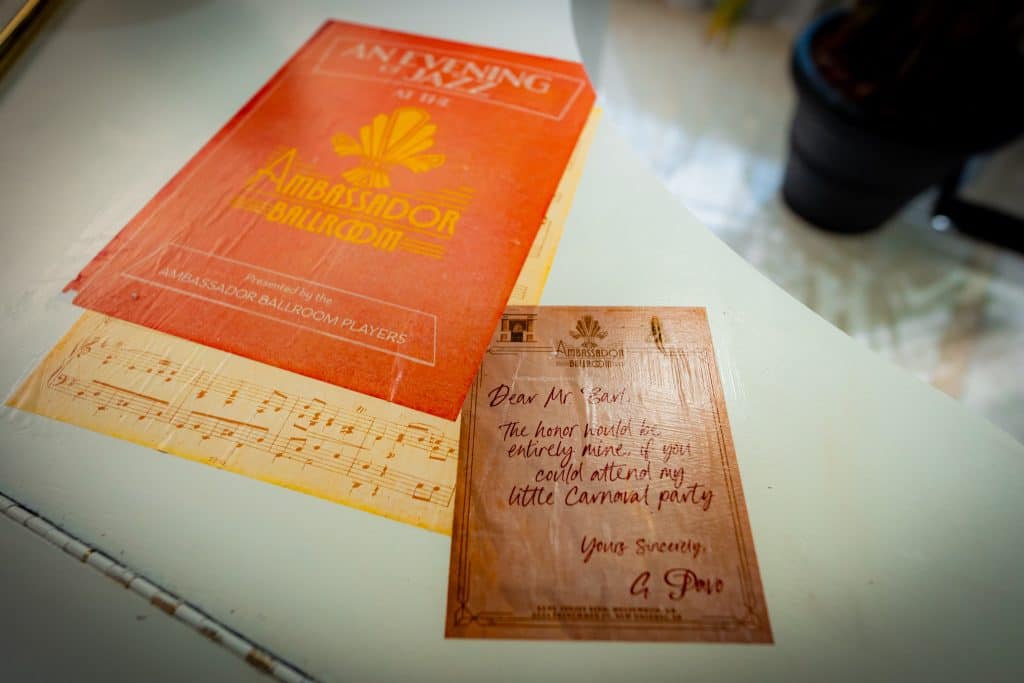 AN EVENING
of JAZZ
AT THE
AMBASSADOR
BALLROOM
Presented by the
AMBASSADOR BALLROOM PLAYERS
AMBASSADOR
BALLROOM
Dear Mr. Barl,
The honor would be
entirely mine, if you
could attend my
little Carnaval party
Yours Sincerely,
G Pavo